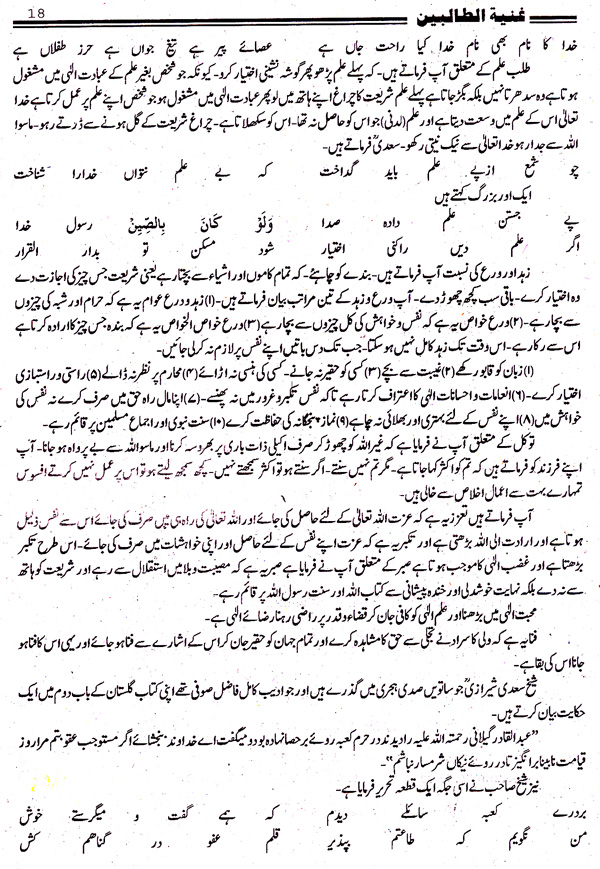 18
غنیة الطالبین
خدا کا نام بھی نام خدا کیا راحت جاں ہے عصائے پیر ہے تیغ جواں ہے حرز طفلاں ہے
طلب علم کے متعلق آپ فرماتے ہیں۔ کہ پہلے علم پڑھو پھر گوشہ نشینی اختیار کرو۔ کیونکہ جو شخص بغیر علم کے عبادت الٰہی میں مشغول
ہوتا ہے وہ سدھرتا نہیں بلکہ بگڑ جاتا ہے پہلے علم شریعت کا چراغ اپنے ہاتھ میں لو پھر عبادت الٰہی میں مشغول ہو جو شخص اپنے علم پر عمل کرتا ہے خدا
تعالیٰ اس کے علم میں وسعت دیتا ہے اور علم (لدنی) جو اس کو حاصل نہ تھا۔ اس کو سکھلاتا ہے۔ چراغ شریعت کے گل ہونے سے ڈرتے رہو۔ ماسوا
اللہ سے جدا رہو خدا تعالیٰ سے نیک نیتی رکھو۔ سعدیؒ فرماتے ہیں۔
چو شمع ازپے علم باید گداخت کہ بے علم نتواں خدارا شناخت
ایک اور بزرگ کہتے ہیں
پے جستن علم دادہ صدا وَلَوْ کَانَ بِالصِّیْنْ رسول خدا
اگر علم دیں راکنی اختیار شود مسکن تو بدار القرار
زہد اور ورع کی نسبت آپ فرماتے ہیں۔ بندے کو چاہئے۔ کہ تمام کاموں اور اشیاء سے بچتا رہے یعنی شریعت جس چیز کی اجازت دے
وہ اختیار کرے۔ باقی سب کچھ چھوڑ دے۔ آپ ورع و زہد کے تین مراتب بیان فرماتے ہیں۔ (۱) زہد و ورع عوام یہ ہے کہ حرام اور شبہ کی چیزوں
سے بچا رہے۔ (۲) ورع خواص یہ ہے کہ نفس و خواہش کی کل چیزوں سے بچا رہے (۳) ورع خواص الخواص یہ ہے کہ بندہ جس چیز کا ارادہ کرتا ہے
اس سے رکا رہے۔ اس وقت تک زہد کامل نہیں ہو سکتا۔ جب تک دس باتیں اپنے نفس پر لازم نہ کر لی جائیں۔
(۱) زبان کو قابو رکھے (۲) غیبت سے بچے (۳) کسی کو حقیر نہ جانے۔ کسی کی ہنسی نہ اڑائے (۴) محارم پر نظر نہ ڈالے (۵) راستی و راستبازی
اختیار کرے۔ (۶) انعامات و احسانات الٰہی کا اعتراف کرتا رہے تاکہ نفس تکبر و غرور میں نہ پھنسے۔ (۷) اپنا مال راہ حق میں صرف کرے نہ نفس کی
خواہش میں (۸) اپنے نفس کے لئے بہتری اور بھلائی نہ چاہے (۹) نماز پنجگانہ کی حفاظت کرے (۱۰) سنت نبوی اور اجماع مسلمین پر قائم رہے۔
توکل کے متعلق آپ نے فرمایا ہے کہ غیر اللہ کو چھوڑ کر صرف اکیلی ذات باری پر بھروسہ کرنا اور ماسوا اللہ سے بے پرواہ ہو جانا۔ آپ
اپنے فرزند کو فرماتے ہیں کہ تم کو اکثر کہا جاتا ہے۔ مگر تم نہیں سنتے۔ اگر سنتے ہو تو اکثر سمجھتے نہیں۔ کچھ سمجھ لیتے ہو تو اس پر عمل نہیں کرتے افسوس
تمہارے بہت سے اعمال اخلاص سے خالی ہیں۔
آپ فرماتے ہیں تعزز یہ ہے کہ عزت اللہ تعالیٰ کے لئے حاصل کی جائے اور اللہ تعالیٰ کی راہ ہی میں صرف کی جائے اس سے نفس ذلیل
ہوتا ہے اور ارادت الی اللہ بڑھتی ہے اور تکبر یہ ہے کہ عزت اپنے نفس کے لئے حاصل اور اپنی خواہشات میں صرف کی جائے۔ اس طرح تکبر
بڑھتا ہے اور غضب الٰہی کا موجب ہوتا ہے صبر کے متعلق آپ نے فرمایا ہے صبر یہ ہے کہ مصیبت و بلا میں استقلال سے رہے اور شریعت کو ہاتھ
سے نہ دے بلکہ نہایت خوشدلی اور خندہ پیشانی سے کتاب اللہ اور سنت رسول اللہ پر قائم رہے۔
محبت الٰہی میں بڑھنا اور علم الٰہی کو کافی جان کر قضاء و قدر پر راضی رہنا رضائے الٰہی ہے۔
فنا یہ ہے کہ ولی کا سر ادنیٰ تجلی سے حق کا مشاہدہ کرے اور تمام جہان کو حقیر جان کر اس کے اشارے سے فنا ہو جائے اور یہی اس کا فنا ہو
جانا اس کی بقا ہے۔
شیخ سعدی شیرازیؒ جو ساتویں صدی ہجری میں گذرے ہیں اور جو ادیب کامل فاضل صوفی تھے اپنی کتاب گلستان کے باب دوم میں ایک
حکایت بیان کرتے ہیں۔
”عبدالقادر گیلانی رحمتہ اللہ علیہ را دیدند در حرم کعبہ روئے بر حصا نہادہ بود و میگفت اے خداوند ببخشائے اگر مستوجب عقوبتم مرا روز
قیامت نابینا برانگیز تا در روئے نیکاں شرمسار نباشم“۔
نیز شیخ صاحب نے اسی جگہ ایک قطعہ تحریر فرمایا ہے۔
بردرے کعبہ سائلے دیدم کہ ہمے گفت و میگرستے خوش
من نگویم کہ طاعتم پپذیر قلم عفو در گناھم کش